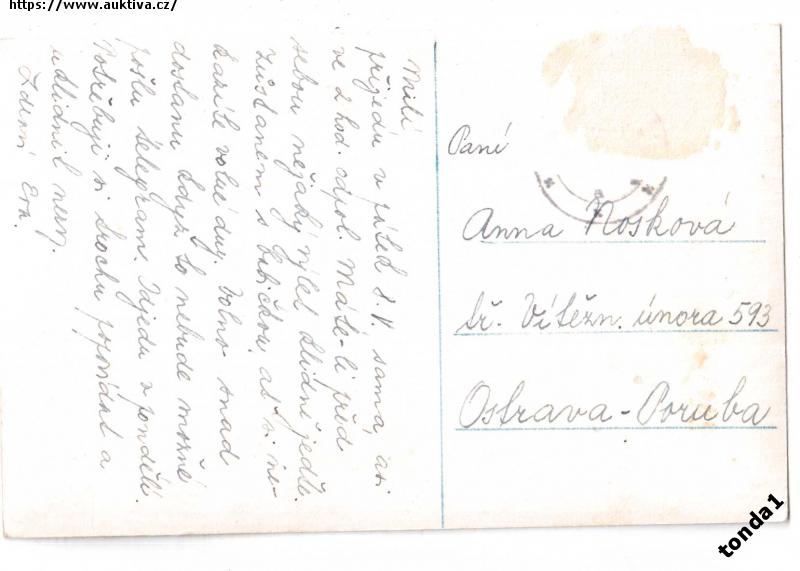 https://www.auktiva.cz/
Milí
přijedu v pátek 8. V. sama, asi
ve 2 hod. odpol. Máte-li před
sebou nějaký výlet klidně jeďte.
Zůstanem s babičkou, ať si ne-
kazíte volné dny. Volno snad
dostanu když to nebude možné
pošlu telegram. Odjedu v pondělí.
Potřebuji si trochu popovídat a
uklidnit nervy.
Zdraví Eva.
Paní
Anna Nosková
tř. Vítězn. února 593
Ostrava-Poruba
tonda1